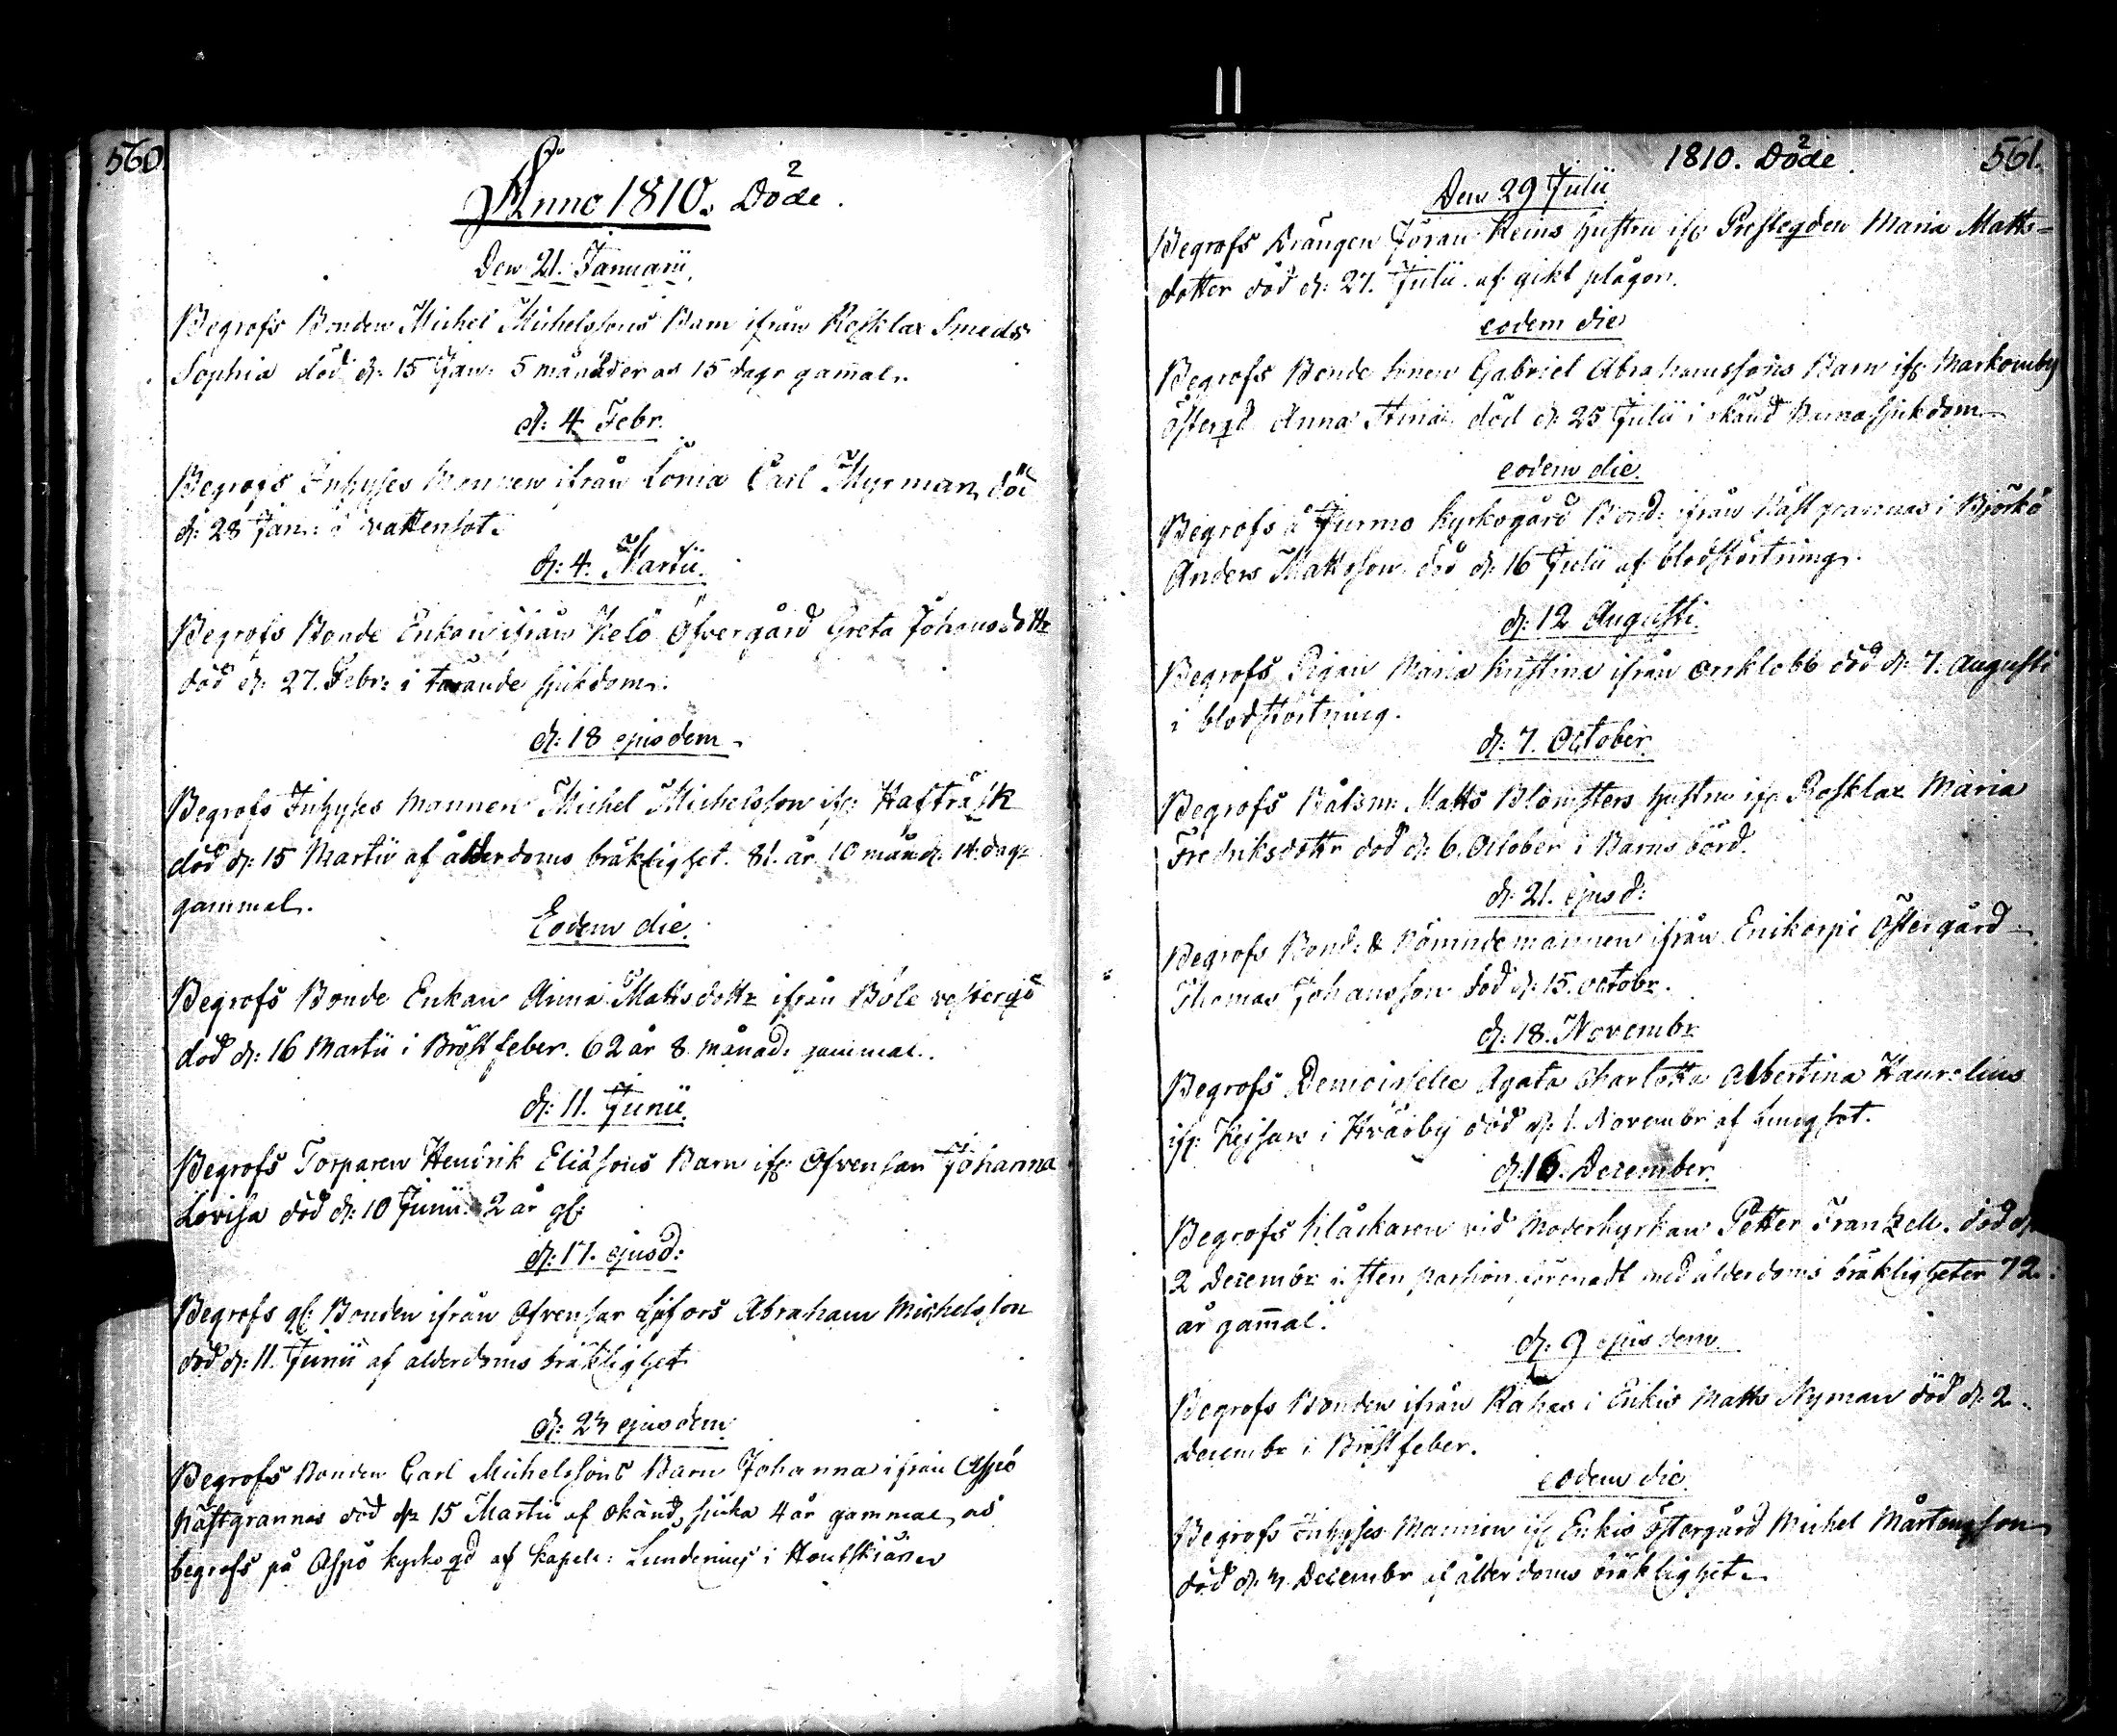 560
Anno 1810. Döde.
Den 21. Januarii.
Begrofs Bonden Michel Michelssons Barn ifrån Rosklax Smeds
Sophia död d: 15 Jan: 5 månader oc 15 dagr gamal.
d: 4 Febr.
Begrofs Inhyses Mannen ifrån Lonia Carl Myrman, död
d: 28 Jan: i vattensot.
d: 4. Martii.
Begrofs Bonde Enkan ifrån Kelö Öfvergård Greta Johansdottr
död d: 27. Febr: i tärande sjukdom.
d: 18 ejusdem
Begrofs Inhyses Mannen Michel Michelsson ifr: Hafträsk
död d: 15 Martii af ålderdoms bräklighet. 81. år 10 mån: 14. dagr
gammal.
Eodem die.
Begrofs Bonde Enkan Anna Mattsdottr ifrån Böle vestergd
död d: 16 Martii i Bröstfeber. 62 år 8 månad. gammal.
d: 11. Junii.
Begrofs Torparen Hendrik Eliasons Barn ifr: Ofvensar Johanna
Lovisa död d: 10 Junii. 2 år gl:
d: 17. ejusd:
Begrofs gl: Bonden ifrån Ofvensar Abraham Michelsson
död d: 11. Junii af alderdoms bräklighet
d: 23 ejusdem
Begrofs Bonden Carl Michelssons Barn Johanna ifrån Aspö
Nästgrannas död d: 15 Martii af okänd sjuka 4 år gammal, oc
begrofs på Aspö kyrkogd af Kapell: Lundenius i Houtskiären
1810. Döde. 561.
Den 29 Julii
Begrofs Drängen Jöran Hustru ifr: Prestegden Maria Matts-
dotter död d: 27. Julii af gikt plågor.
eodem die
Begrofs Bonde Sonen Gabriel Abrahamssons Barn ifr: Markomby
Östergd Anna Stina, död d: 25 Julii i okänd Barnasjukdom
eodem die.
Begrofs å Jurmo Kyrkogård Bond: ifrån Nästgrannas i Björkö
Anders Mattsson död d: 16 Julii af blodstörtning.
d: 12 Augusti.
Begrofs Pigan Maria Kristina ifrån Orrklobb död d: 7. Augusti
i blodstörtning.
d: 7. October.
Begrofs Båtsm: Matts Blomsters hustru ifr: Rosklax Maria
Fredriksdottr död d: 6. October i Barns börd.
d: 21. ejusd:
Begrofs Bond: & Nämndemannen ifrån Enikorpi Östergård
Thomas Johansson död d: 15. octobr.
d: 18. Novembr
Begrofs Demoiselle Agata Charlotta Albertina Haurelius
ifr: Kejsars i Hväsby död d: 1. Novembr af lungsot.
d: 16. December.
Begrofs Klåckaren vid Moderkyrkan Petter Franzell. död d:
2 Decembr i sten passion förenadt med ålderdoms bräkligheter 72.
år gamal.
d: 9 ejusdem.
Begrofs Bonden ifrån Rahas i Enkis Matts Nyman död d: 2.
decembr i Bröstfeber.
eodem die.
Begrofs Inhyses Mannen ifr: Enkis Östergård Michel Mårtensson
död d: 3. Decembr af ålderdoms bräklighet.